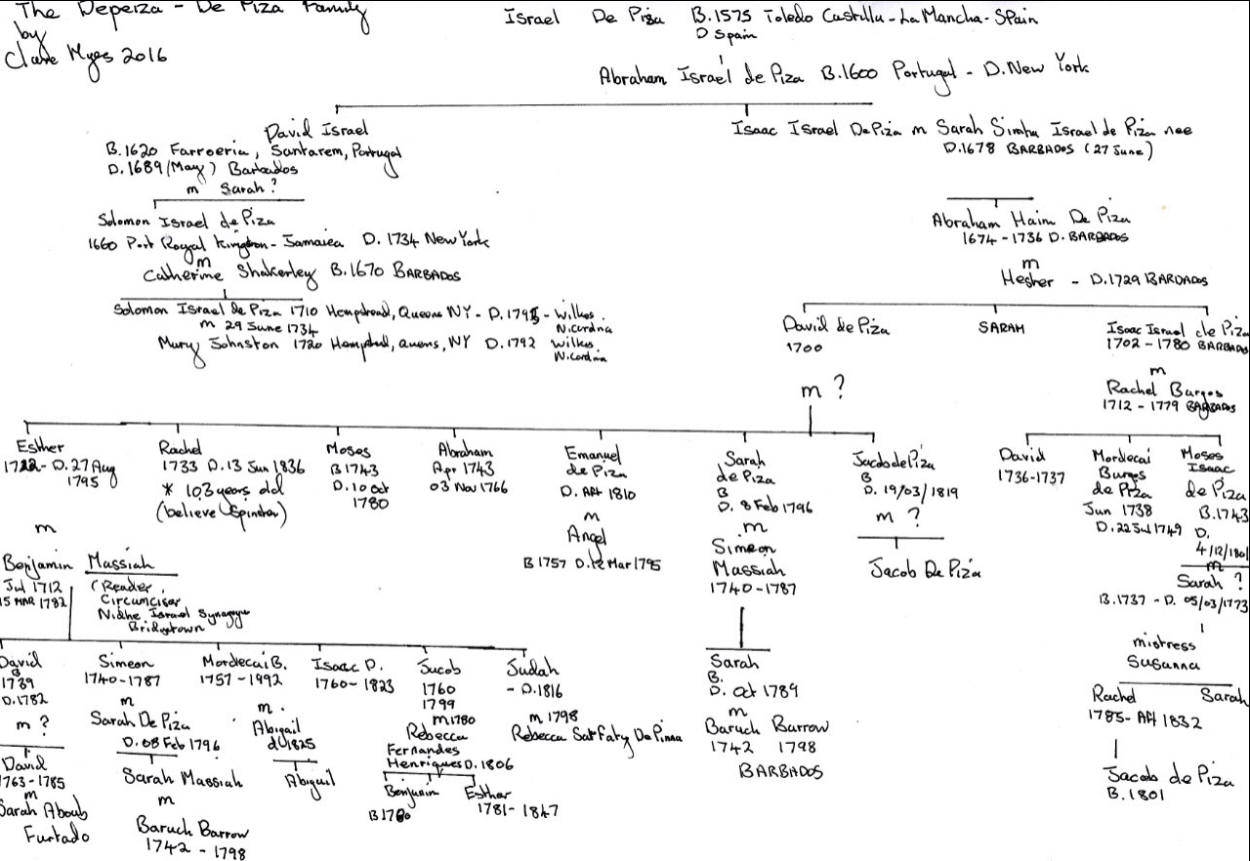 The Depeiza - De Piza Family
by
Clare Myes 2016
Israel De Piza B.1575 Toledo Castilla-La Mancha-Spain
D Spain
Abraham Israel de Piza B.1600 Portugal - D. New York
David Israel
B.1620 Farroeria, Santarem, Portugal
D.1689 (May) Barbados
m Sarah?
Isaac Israel DePiza m Sarah Simha Israel de Piza nee
D.1678 BARBADOS (27 June)
Solomon Israel de Piza
1660 Port Royal Kingston-Jamaica D. 1734 New York
m
Catherine Shakerley B.1670 BARBADOS
Abraham Haim De Piza
1674-1736 D. BARBADOS
m
Hesher - D.1729 BARBADOS
Solomon Israel de Piza 1710 Hempstead, Queens NY - D.1795 - Wilkes.
N.Cardina
m 29 June 1734
Mary Johnston 1720 Hempstead, Queens, NY D.1792 Wilkes
N.Cardina
David de Piza
1700
m ?
SARAH
Isaac Israel de Piza
1702-1780 BARBADOS
m
Rachel Burgos
1712-1779 BARBADOS
Esther
1722- D.27 Aug
1795
m
Benjamin Massiah
Jul 1712
15 MAR 1782
(Reader,
Circumcisor
Nidhe Israel Synagogue
Bridgetown
Rachel
1733 D.13 Jun 1836
* 103 years old
(believe Spinster)
Moses
B1743
D.10 Oct
1780
Abraham
Apr 1743
03 Nov 1766
Emanuel
de Piza
D. Aft 1810
m
Angel
B 1757 D.12 Mar 1795
Sarah
de Piza
B
D. 8 Feb 1796
m
Simeon
Massiah
1740-1787
Jacob de Piza
B
D. 19/03/1819
m ?
Jacob De Piza
David
1736-1737
Mordecai
Burgos
de Piza
Jun 1738
D.22 Jul 1749
Moses
Isaac
de Piza
B.1743
D.
4/12/1801
m
Sarah ?
B.1737 - D. 05/03/1773
mistress
Susanna
Rachel
1785- Aft 1832
Sarah
Jacob de Piza
B.1801
David
B
1739
D.1782
m ?
David
1763-1785
m
Sarah Aboub
Furtado
Simeon
1740-1787
m
Sarah De Piza
D.08 Feb 1796
Sarah Massiah
m
Baruch Barrow
1742 - 1798
Mordecai B.
1757-1992
m.
Abigail
d 1825
Abigail
Isaac D.
1760-1823
Jacob
1760
1799
m1780
Rebecca
Fernandes
Henriques D.1806
Benjamin
B1780
Esther
1781-1847
Judah
- D.1816
m 1798
Rebecca Sarfaty De Pinna
Sarah
B.
D. Oct 1789
m
Baruch Barrow
1742 1798
BARBADOS